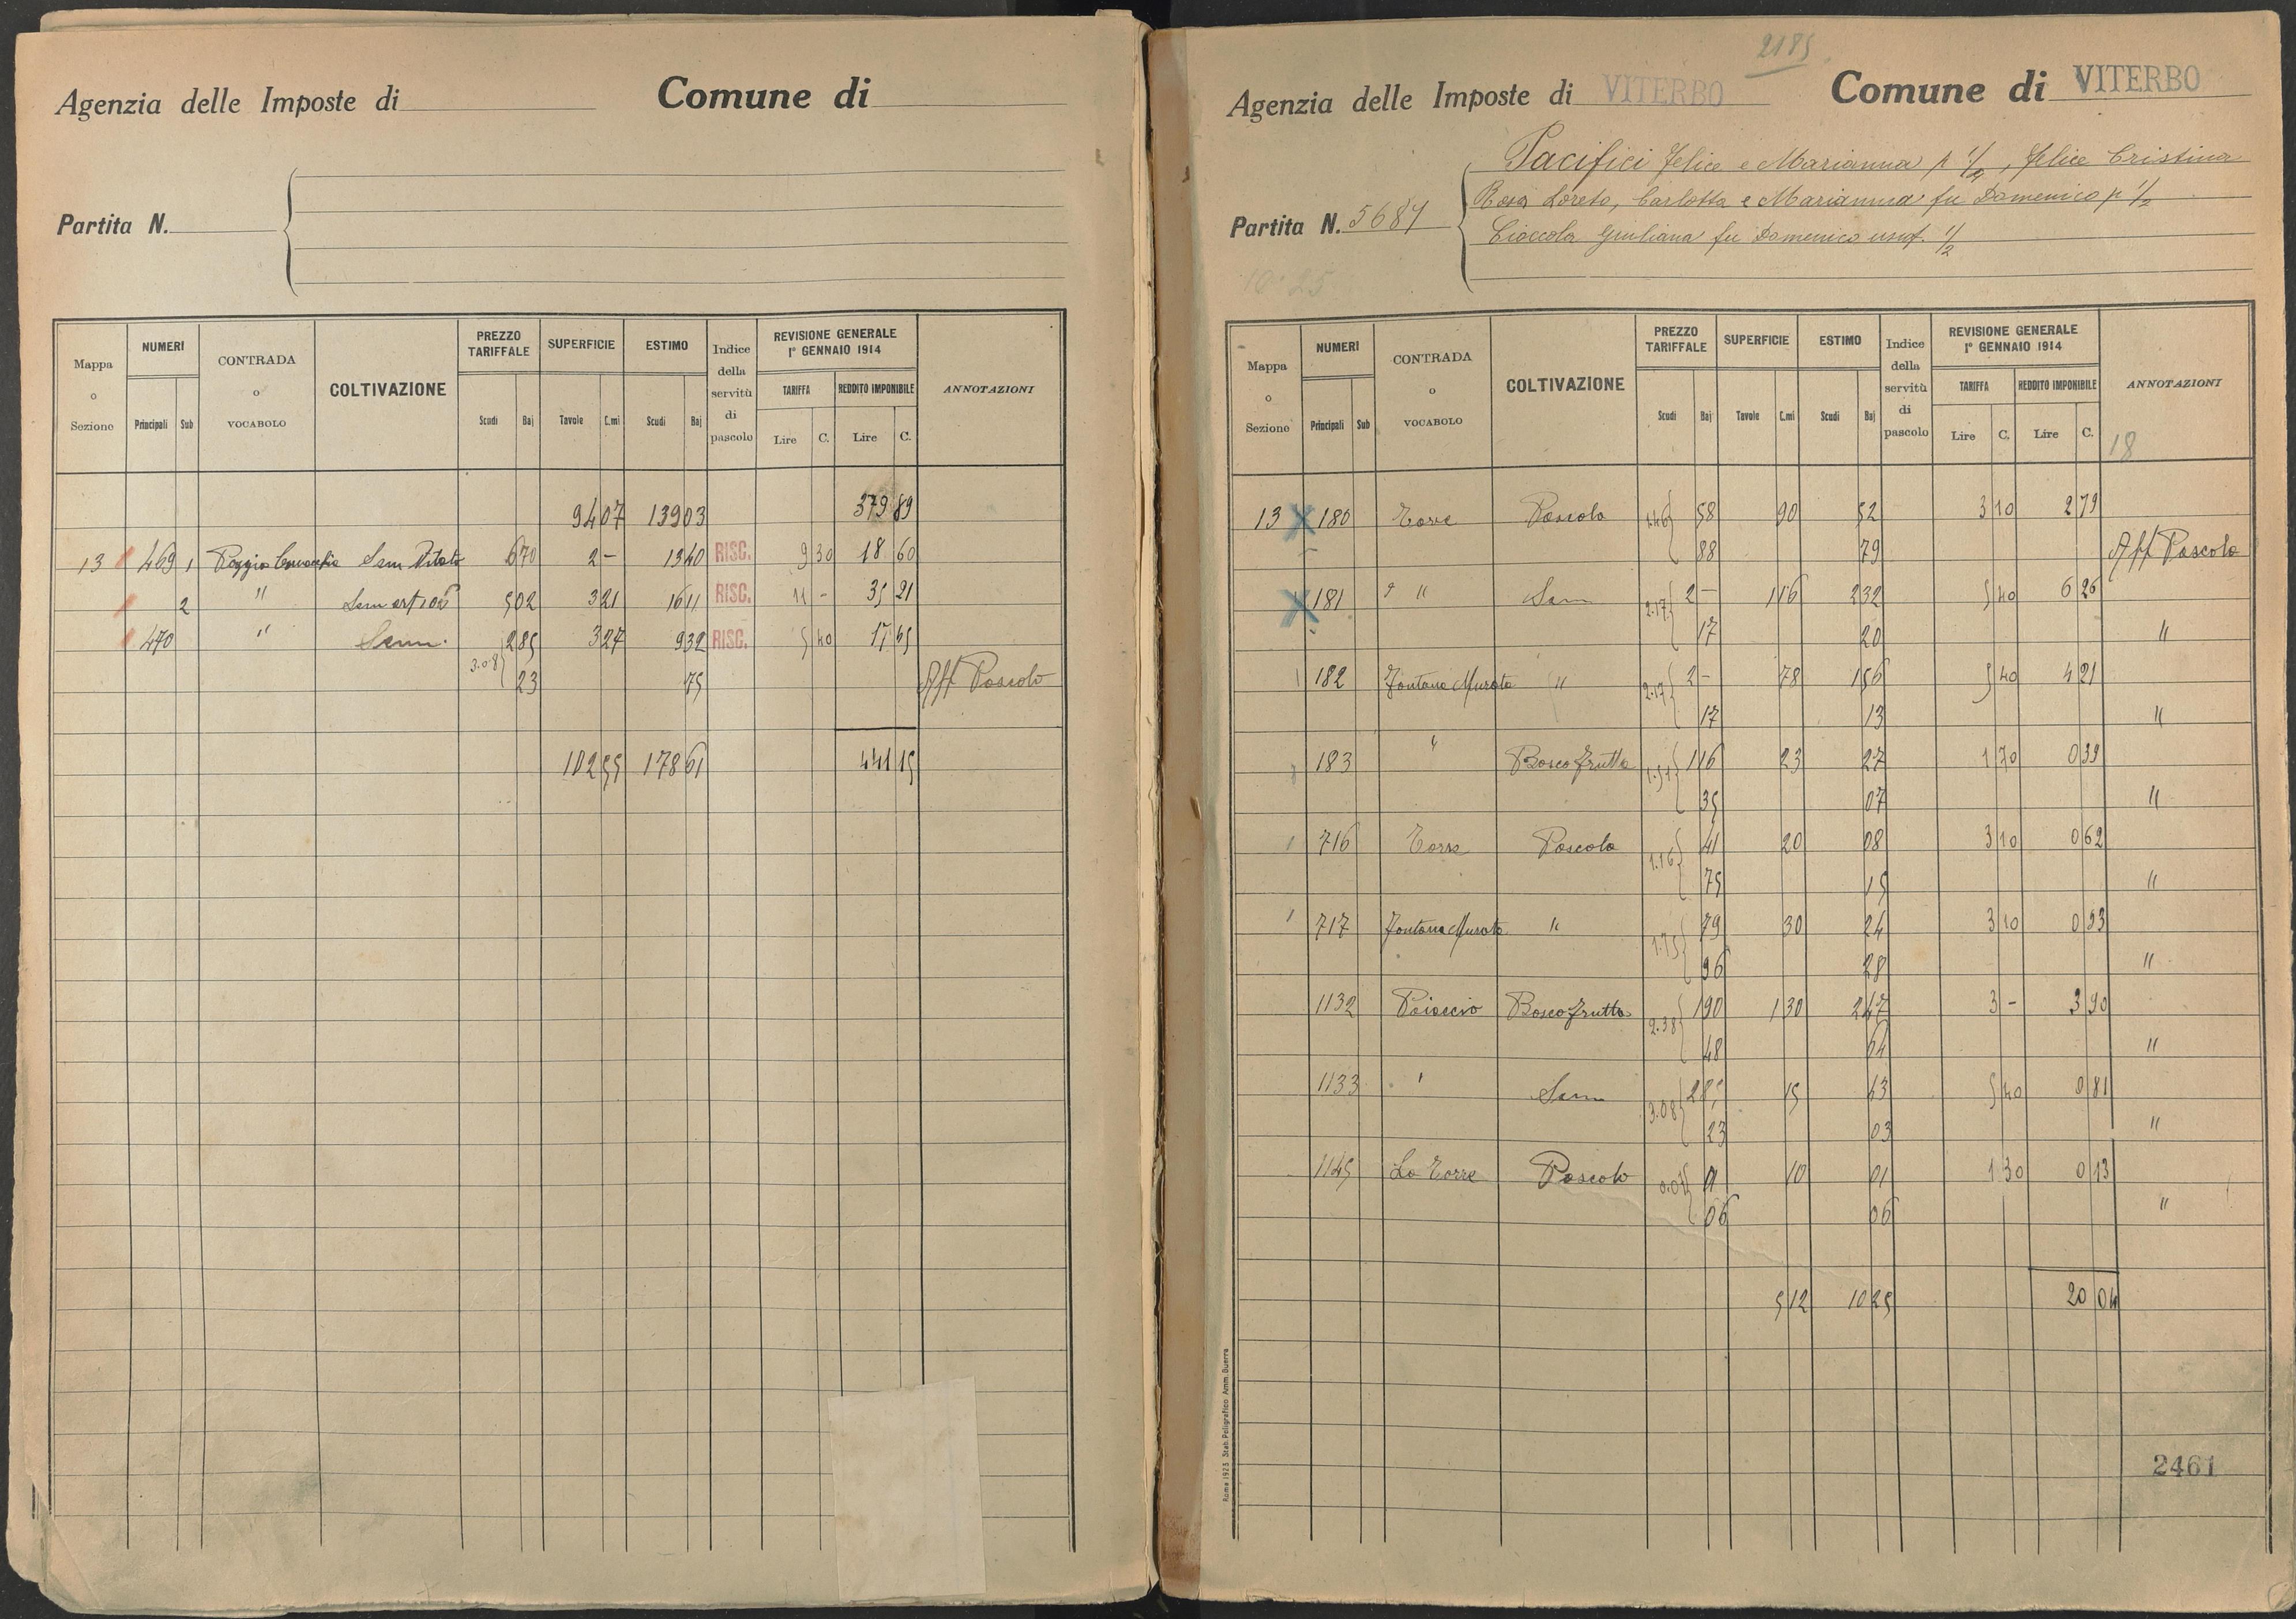 Agenzia delle Imposte di Comune di
Partita N.
Mappa o Sezione NUMERI Principali Sub CONTRADA o VOCABOLO COLTIVAZIONE PREZZO TARIFFALE Scudi Baj SUPERFICIE Tavole C.mi ESTIMO Scudi Baj Indice della servitù di pascolo REVISIONE GENERALE 1° GENNAIO 1914 TARIFFA Lire C. REDDITO IMPONIBILE Lire C. ANNOTAZIONI
94 07 139 03 379 89
13 469 1 Poggio Sem Vitato 6 70 2 - 13 40 RISC. 9 30 18 60
2 " 5 02 3 21 16 11 RISC. 11 - 35 21
470 " Sem. 2 85 3 27 9 32 RISC. 5 40 17 65
3.08 23 75 Aff Pascolo
102 55 178 61 441 15
2185
Agenzia delle Imposte di VITERBO Comune di VITERBO
Pacifici Felice e Marianna p 1/2, Felice Cristina
Partita N. 5687 Rosa Loreto, Carlotta e Marianna fu Domenico p 1/2
Cioccola Giuliana fu Domenico usuf. 1/2
Mappa o Sezione NUMERI Principali Sub CONTRADA o VOCABOLO COLTIVAZIONE PREZZO TARIFFALE Scudi Baj SUPERFICIE Tavole C.mi ESTIMO Scudi Baj Indice della servitù di pascolo REVISIONE GENERALE 1° GENNAIO 1914 TARIFFA Lire C. REDDITO IMPONIBILE Lire C. ANNOTAZIONI
18
13 X 180 Torre Pascolo 1.46 58 90 52 3 10 2 79
88 79 Aff Pascolo
X 181 " Sem 2.17 2 - 1 16 2 32 5 40 6 26
17 20 "
182 Fontana Murata " 2.17 2 - 78 1 56 5 40 4 21
17 13 "
183 " Bosco frutto 1.51 1 16 23 27 1 70 0 39
35 07 "
716 Torre Pascolo 1.16 41 20 08 3 10 0 62
75 15 "
717 Fontana Murata " 1.75 79 30 24 3 10 0 93
96 28 "
1132 Poiaccio Bosco frutto 2.38 1 90 1 30 2 47 3 - 3 90
48 64 "
1133 " Sem 3.08 2 85 15 43 5 40 0 81
23 03 "
1145 La Torre Pascolo 0.07 01 10 01 1 30 0 13
06 06 "
5 12 10 25 20 04
Roma 1923 Stab. Poligrafico Amm. Guerra
2461